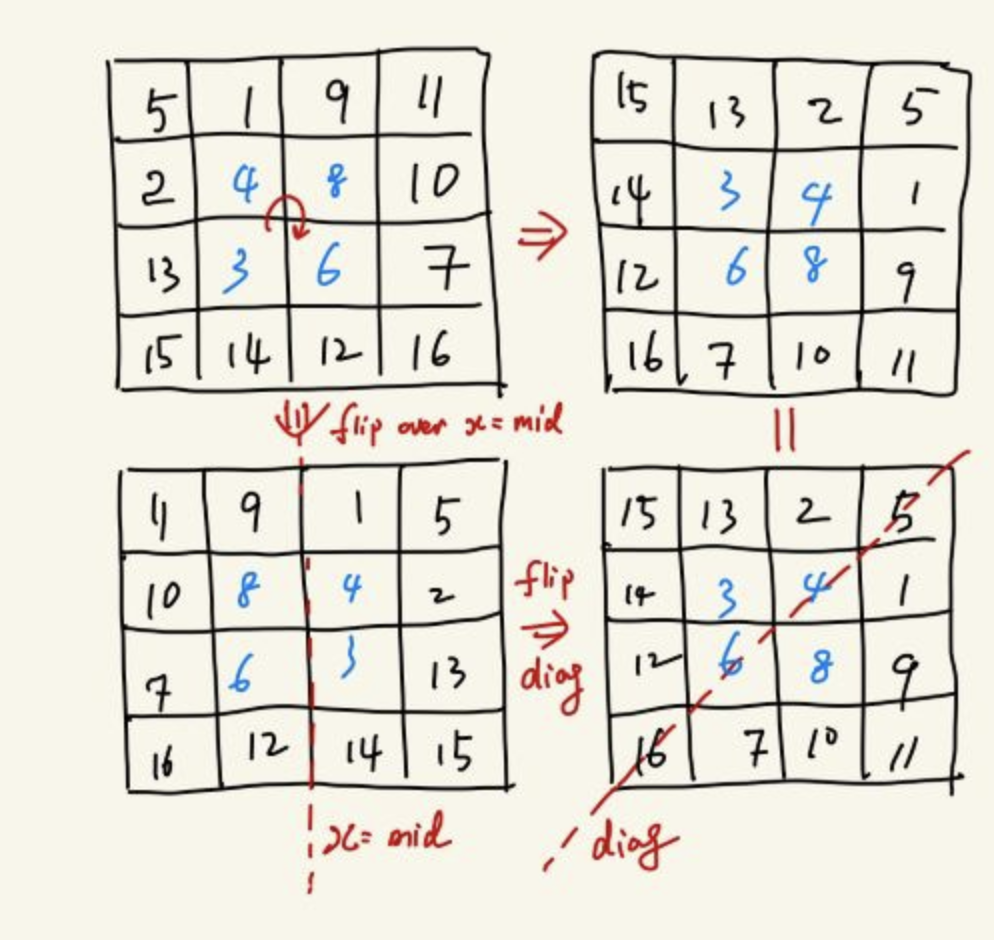 5 1 9 11
2 4 8 10
13 3 6 7
15 14 12 16
⇒
15 13 2 5
14 3 4 1
12 6 8 9
16 7 10 11
flip over x = mid
||
11 9 1 5
10 8 4 2
7 6 3 13
16 12 14 15
x = mid
flip
⇒
diag
15 13 2 5
14 3 4 1
12 6 8 9
16 7 10 11
diag